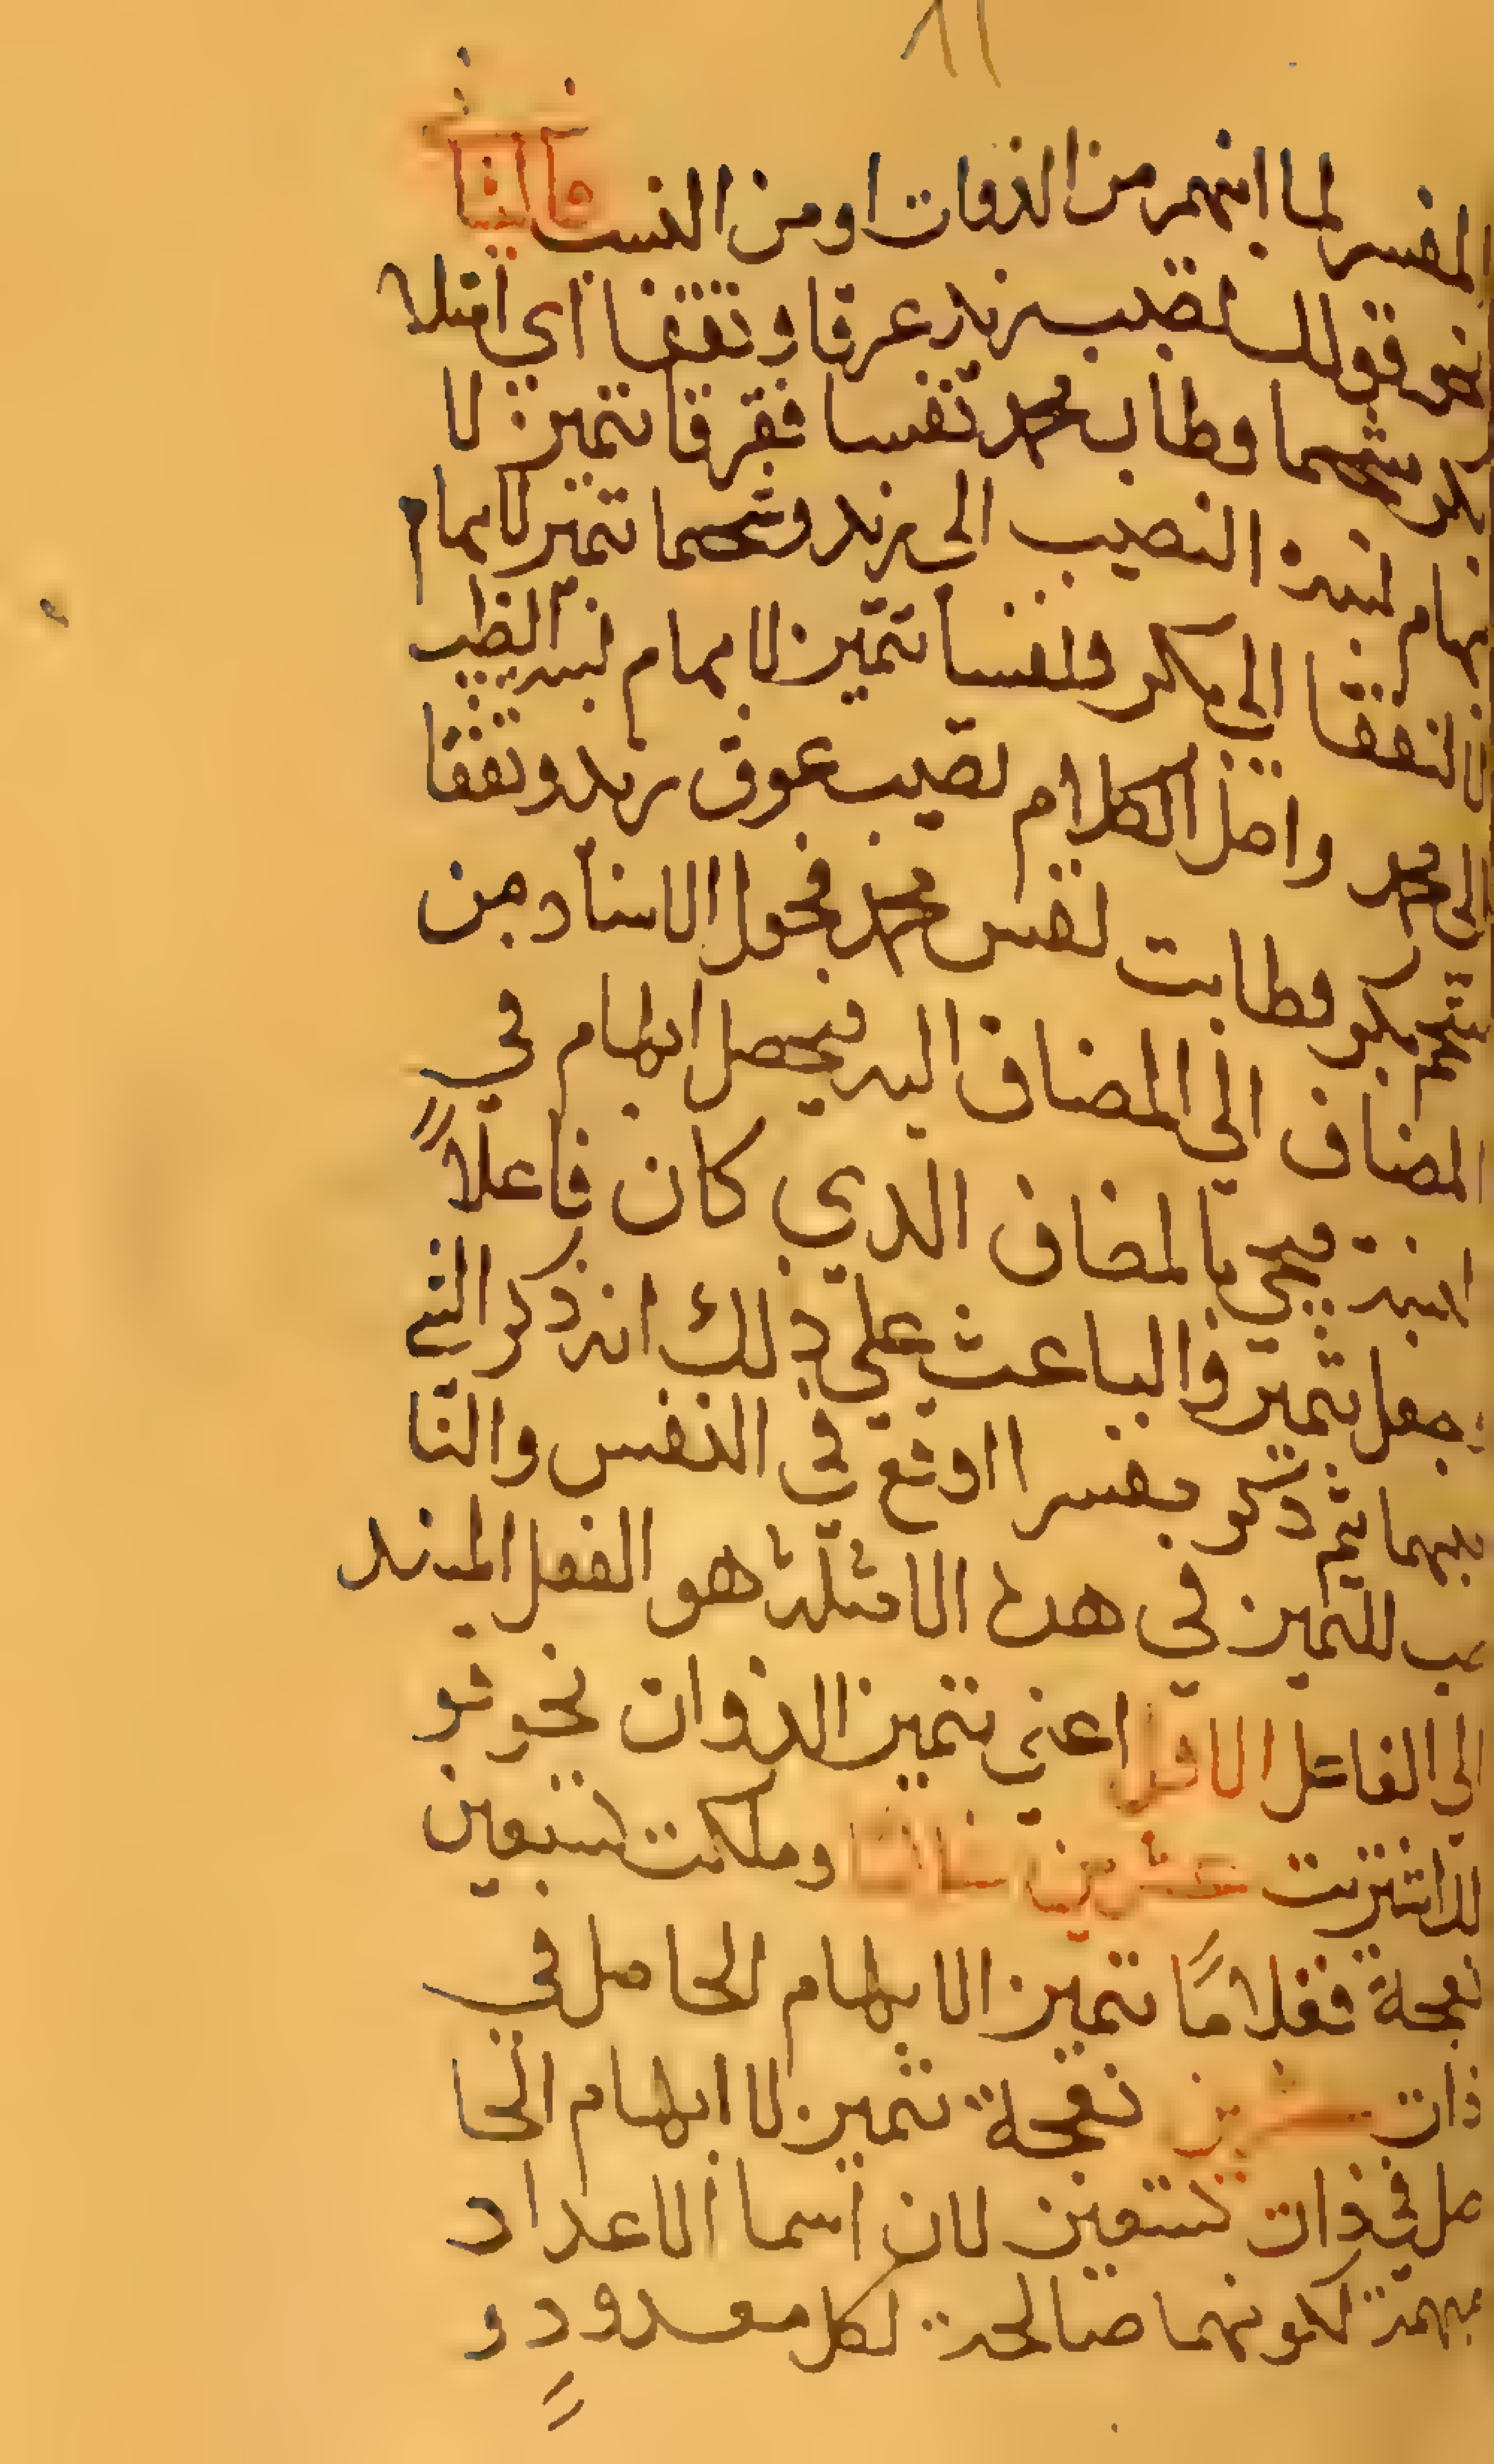 المفسر لما انبهم من الذوات او من النسب فالثا
نحو قولك تصبب زيد عرقا وتفقا اي امتلا
بكر شحما وطاب محمد نفسا فعرقا تمييز لا
بهام نسبة التصبب الى زيد وشحما تمييز لابهام
التفقا الى بكر ونفسا تمييز لابهام نسبة الطيب
الى محمد واصل الكلام تصبب عرق زيد وتفقا
شحم بكر وطابت نفس محمد فحول الاسناد من
المضاف الى المضاف اليه فيحصل ابهام في
النسبة فيجي بالمضاف الذي كان فاعلاً
جعل تمييز والباعث على ذلك ان ذكر الشي
مبهما ثم ذكره مفسرا اوقع في النفس والنا
صب للتميز في هذه الامثلة هو الفعل المسند
الى الفاعل الاول اعني تمييز الذوات نحو قو
لك اشتريت عشرين غلاما وملكت تسعين
نعجة فغلامًا تمييز الابهام الحاصل في
ذات عشرين نعجة تمييز لا ابهام الحا
صل في ذات تسعين لان اسما الاعداد
مبهمة لكونهما صالحة لكل معدودٍ و